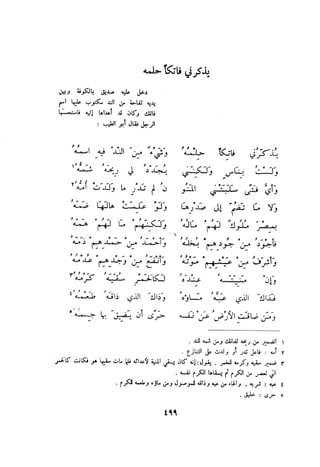 يذكرني فاتكاً حلمه
دخل عليه صديق بالكوفة وبين
يديه تفاحة من الند مكتوب عليها اسم
فاتك وكان قد أهداها إليه فاستحسنها
الرجل فقال أبو الطيب :
يُذَكِّرُني فاتِكاً حِلْمُهُ وَشَيْءٌ مِنَ النّدّ فيهِ اسْمُهُ
وَلَسْتُ بِنَاسٍ وَلَكِنّني يُجَدِّدُ لي رِيحَهُ شَمُّهُ ١
وَأيَّ فَتًى سَلَبَتْني المَنُو نُ لم تَدْرِ ما وَلَدَتْ أُمُّهُ ٢
وَلا مَا تَضُمُّ إلى صَدْرِهَا وَلَوْ عَلِمَتْ هَالَهَا ضَمُّهُ
بمِصْرَ مُلُوكٌ لَهُمْ مَالُهُ وَلَكِنّهُمْ مَا لَهُمْ هَمُّهُ
فَأجْوَدُ مِنْ جُودِهِمْ بُخْلُهُ وَأحْمَدُ مِنْ حَمْدِهِمْ ذَمُّهُ
وَأشْرَفُ مِنْ عَيْشِهِمْ مَوْتُهُ وَأنْفَعُ مِنْ وَجْدِهِمْ عُدْمُهُ
وَإنّ مَنِيّتَهُ عِنْدَهُ لَكَالخَمْرِ سُقّيَهُ كَرْمُهُ ٣
فَذاكَ الذي عَبَّهُ مَاؤهُ وَذاكَ الذي ذاقَهُ طَعْمُهُ ٤
وَمَنْ ضاقَتِ الأرْضُ عَنْ نَفْسِه حَرَى أنْ يَضِيقَ بهَا جِسْمُهُ ٥
١ الضمير من ريحه لفاتك ومن شمه للند .
٢ أمه : فاعل تدر أو ولدت على التنازع .
٣ ضمير سقيه وكرمه للخمر . يقول : إنه كان يسقي المنية لأعدائه فلما مات سقيها هو فكانت كالخمر
التي تعصر من الكرم ثم يسقاها الكرم نفسه .
٤ عبه : شربه . والهاء من عبه وذاقه للموصول ومن ماؤه وطعمه للكرم .
٥ حرى : خليق .
٤٩٩